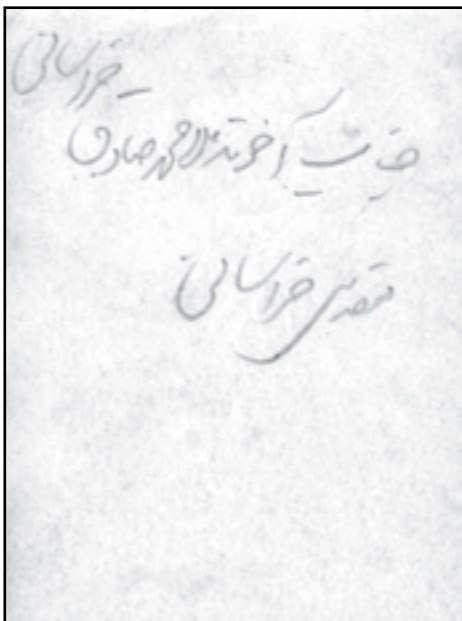 خراسانی
جناب آخوند ملا محمد صادق
مقدس خراسانی